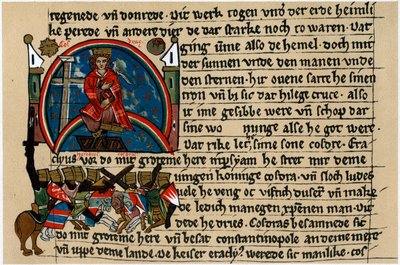 regenede vn̄ donrede. Dir werk togen vnd der erde heimli
ke perede vn̄ andere dier de dar starke noch to waren. Dat
ging vme also de hemel. doch mit
der sunnen vnde den manen vnde
den sternen. hir ouene satte he sinen
tron vn̄ bi sic dat hilege cruce. also
it ime gesibbe were vn̄ schop dar
sine wo nunge alse he got were.
Dat rike let sime sone cosdre. Era
clius vor do mit groteme here in psyam he stret mit deme
iungen koninge cosdra. vn̄ sloch ludes
vele he veng oc viftich dusent vn̄ make
de ledich manegen xp̄enen man. Dit
dede he dries. Cosdras besammede sic
do mit groteme here vn̄ besat constantinopole an deme mere
vn̄ vppe deme lande. De keiser eracl9 werede sic manlike. cos